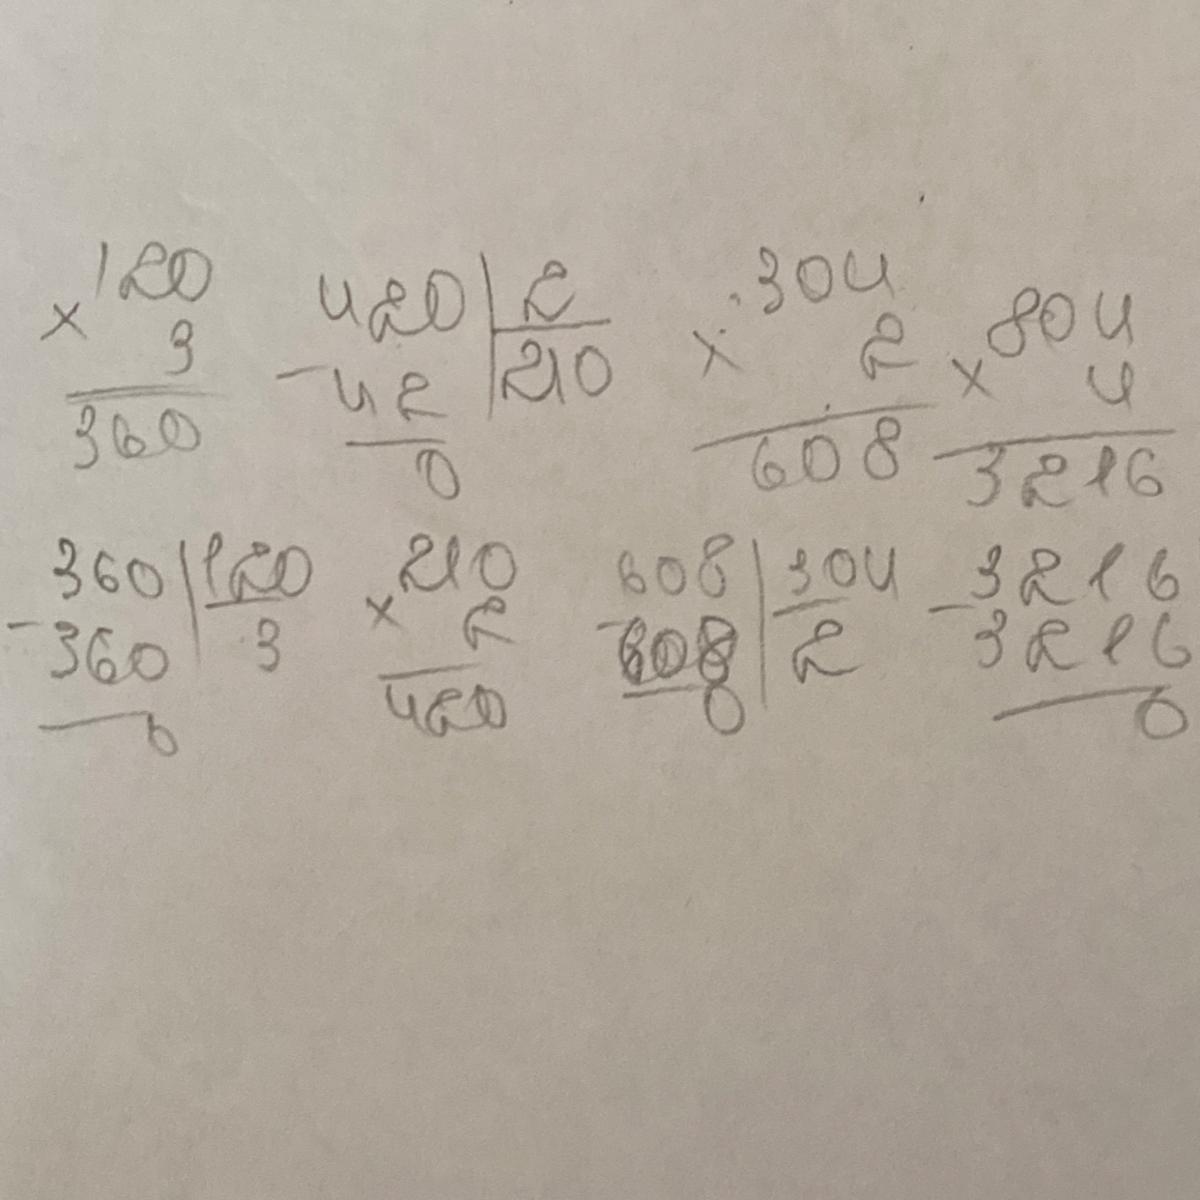 120 420 | 2 304 804
× 3 - 42 | 210 × 2 × 4
360 0 608 3216
360 | 120 210 608 | 304 3216
- 360 | 3 × 2 - 608 | 2 - 3216
0 420 0 0